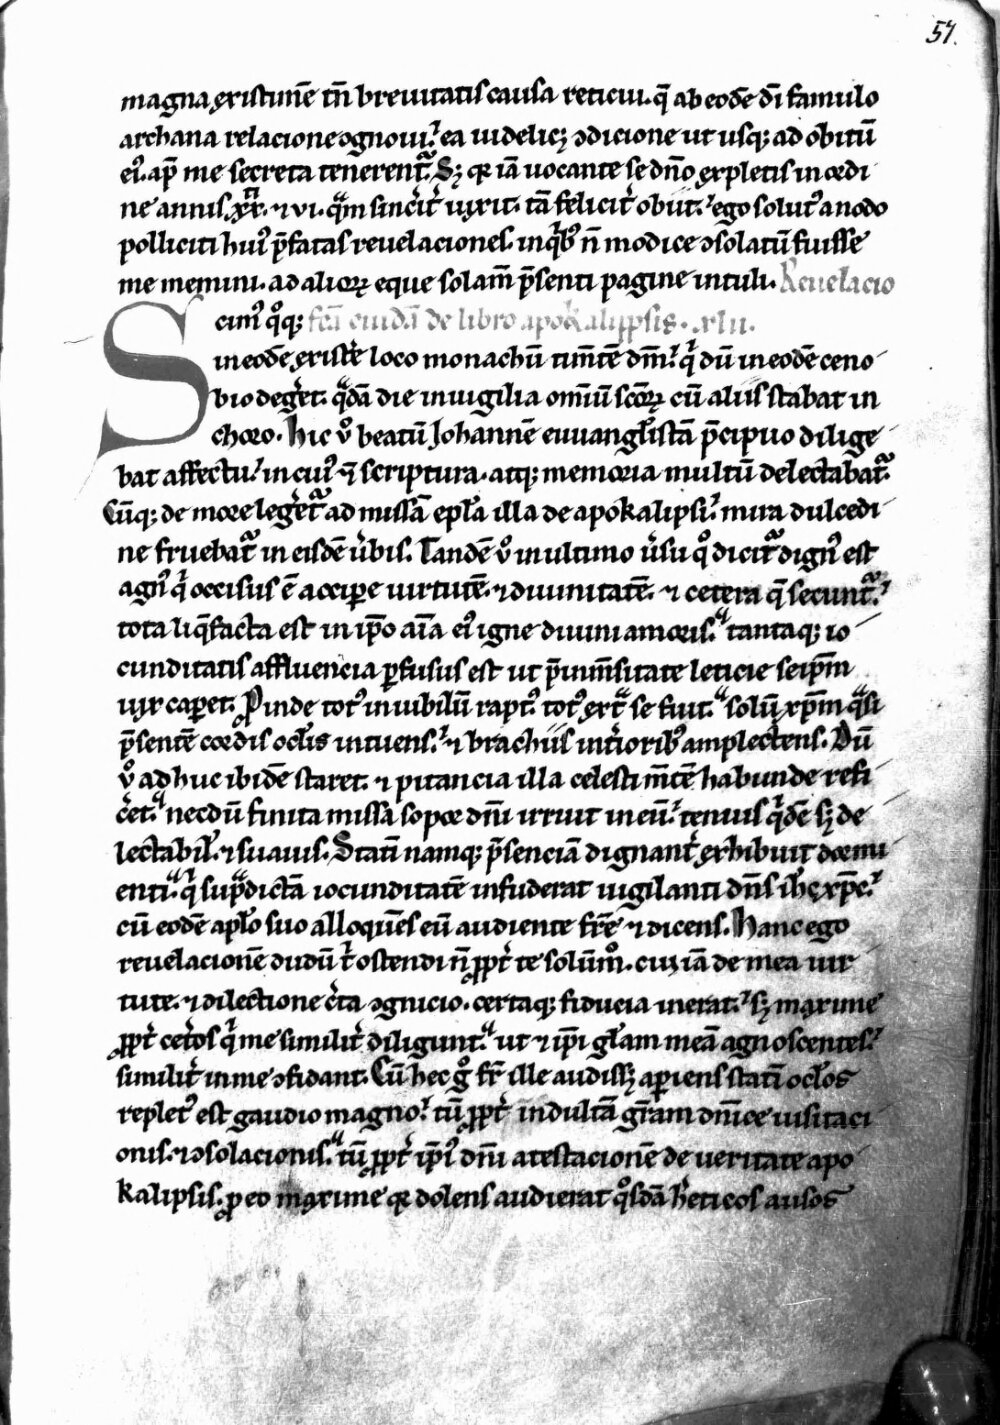 57.
magna existimē tn̄ breuitatis causa reticui. q̄ ab eodē dī famulo
archana relacione ꝯgnoui. ea uidelicꝫ ꝯdicione ut usqꝫ ad obitū
eiꝰ. ap̄ me secreta tenerent᷑. Sꝫ qꝛ iā uocante se dn̄o expletis in ordi
ne annis. xx. ⁊ vi. qͣm sinc̄it̉ uixit. tā felicit̉ obiit. ego solutꝰ a nodo
polliciti huiꝰ p̄fatas reuelaciones. in qⁱbꝰ n̄ modice ꝯsolatū fuisse
me memini. ad alioꝝ eque solam̄ p̄senti pagine intuli. Reuelacio
cimꝰ qͦqꝫ fc̄a cuidā de libro apokalipsis. xlii.
Sin eodē existẻ loco monachū timētē dm̄. qⁱ dū in eodē ceno
bio deget̉. qͣdā die in uigilia omniū sc̄oꝝ cū aliis stabat in
choro. Hic vͦ beatū Johannē euuangl̄istā p̄cipuo dilige
bat affectu. in cuiꝰ ⁊ scriptura. atqꝫ memoria multū delectabat᷑.
Cūqꝫ de more leget̉᷑ ad missā epl̄a illa de apokalipsi. mira dulcedi
ne fruebat᷑ in eisdē ūbis. Tandē vͦ in ultimo ūsu qͦ dicit᷑ dignꝰ est
agnꝰ qⁱ occisus ē accipe uirtutē. ⁊ diuinitatē. ⁊ cetera q̄ secunt᷑.
tota liq̄facta est in ip̄o aīa eiꝰ igne diuini amoris. tantaqꝫ io
cunditatis affluencia ꝑfusus est ut p̄ inm̄sitate leticie seip̄m
uix caꝑet. Proinde totꝰ in iubilū raptꝰ. totꝰ extͣ se fuit. solū xp̄m qͣsi
p̄sentē cordis ocl̄is intuens. ⁊ brachiis int̉ioribꝰ amplectens. Dū
vͦ adhuc ibidē staret. ⁊ pitancia illa celesti m̄te habunde refi
c̉et. necdū finita missa sopor dn̄i irruit in eū. tenuis qⁱdē sꝫ de
lectabil̄. ⁊ suauis. Statī namqꝫ p̄senciā dignant̉ exhibuit dormi
enti. qⁱ sup̄dictā iocunditatē infuderat uigilanti dn̄s ih̄c xp̄c.
cū eodē apl̄o suo alloquēs eū audiente fr̄e ⁊ dicens. Hanc ego
reuelacionē dudū t̉ ostendi n̄ ꝓpt̉ te solūmͦ. cui iā de mea uir
tute. ⁊ dilectione c̉ta ꝯgnicio. certaqꝫ fiducia inerat. sꝫ maxime
ꝓpt̉ cet̉os qⁱ me similit̉ diligunt. ut ⁊ ip̄i gl̄am meā agnoscentes.
similit̉ in me ꝯfidant. Cū hec gͦ fr̄ ille audissꝫ aperiens statī ocl̄os
repletꝰ est gaudio magno. tū ꝓpt̉ indultā gr̄am dn̄ice uisitaci
onis. ⁊ ꝯsolacionis. tū ꝓpt̉ ip̄iꝰ dn̄i atestacionē de ueritate apo
kalipsis. ꝓ eo maxime qꝛ dolens audierat qͦsdā h̉eticos ausos